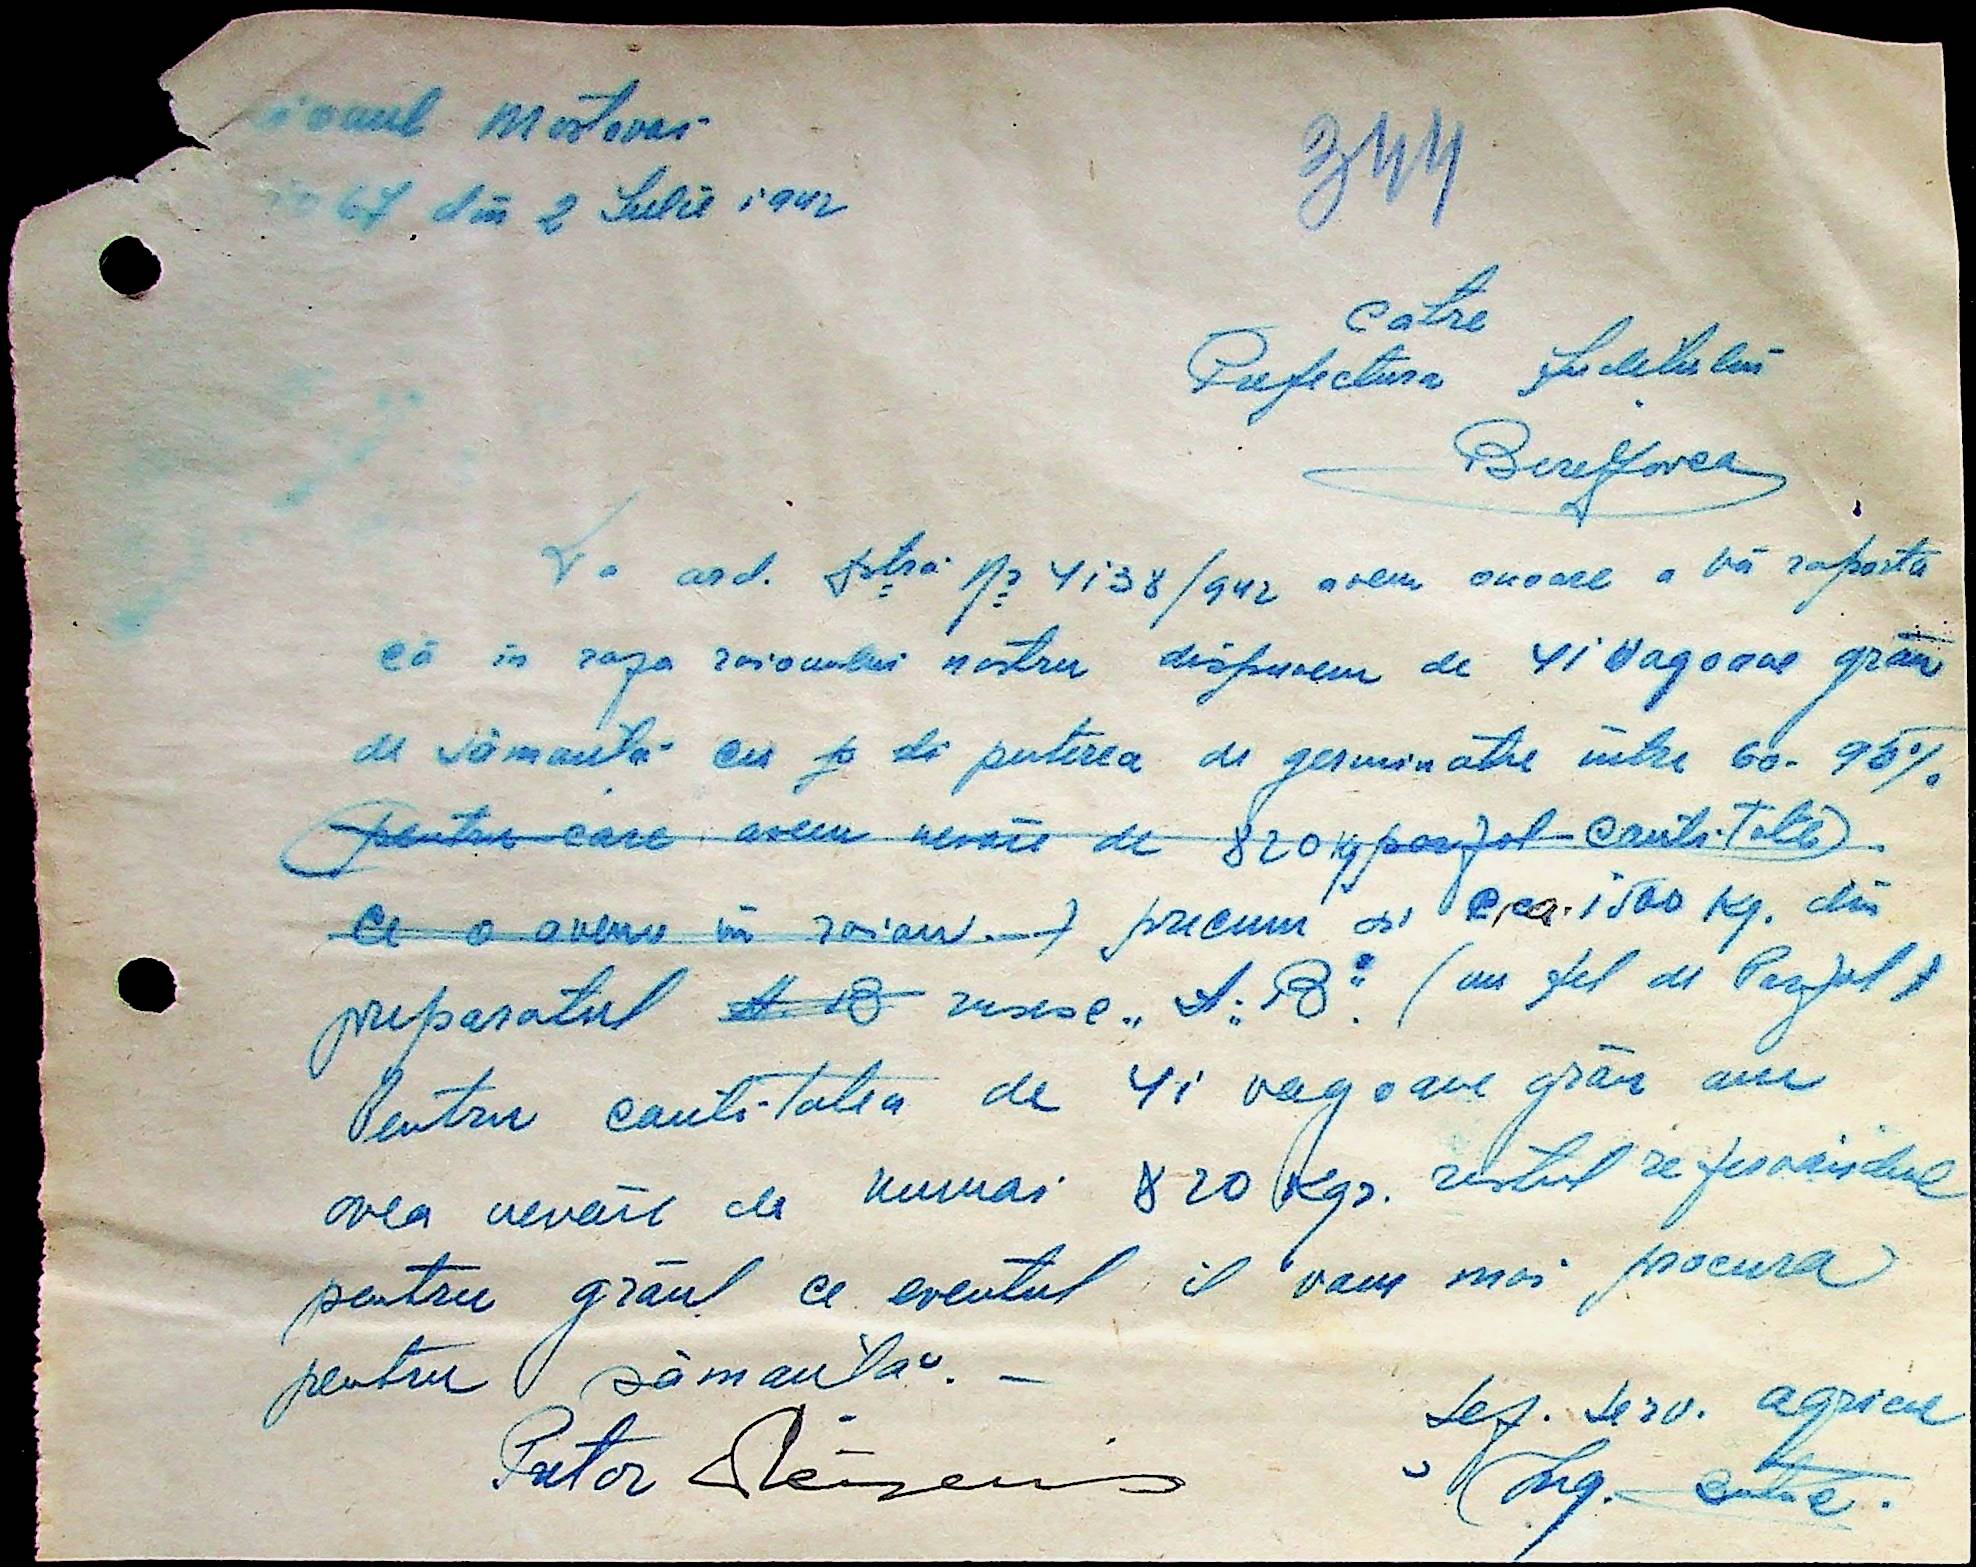 raionul Mostovoi
67 din 2 Iulie 1942
344
Catre
Prefectura Judetului
Berezovca
La ord. Dstră Nr 4138/942 avem onoare a vă raporta
că in raza raionului nostru dispunem de 41 vagoane grâu
de sămantă cu p de puterea de germinatie între 60-95%
(pentru care avem nevoie de 820 kg porzol cantitate)
ce o avem în raion.) precum si cca. 1500 kg. din
preparatul A B rusesc „A„B". (un fel de Porzol)
Pentru cantitatea de 41 vagoane grâu am
avea nevoie de numai 820 Kgr. restul
pentru grâul ce eventul il vom mai procura
pentru sămantă. —
Sef. serv. agricol
Pretor
Ing.